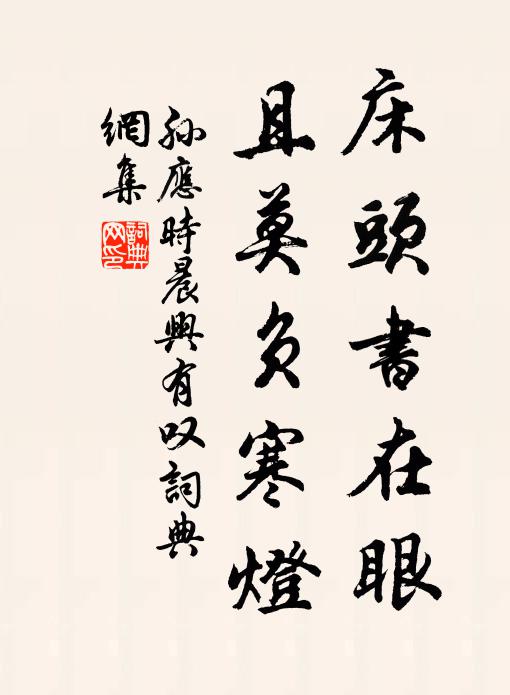 床頭書在眼
且莫負寒燈
孫應時晨興有叹詞典
網集
詞典
网印